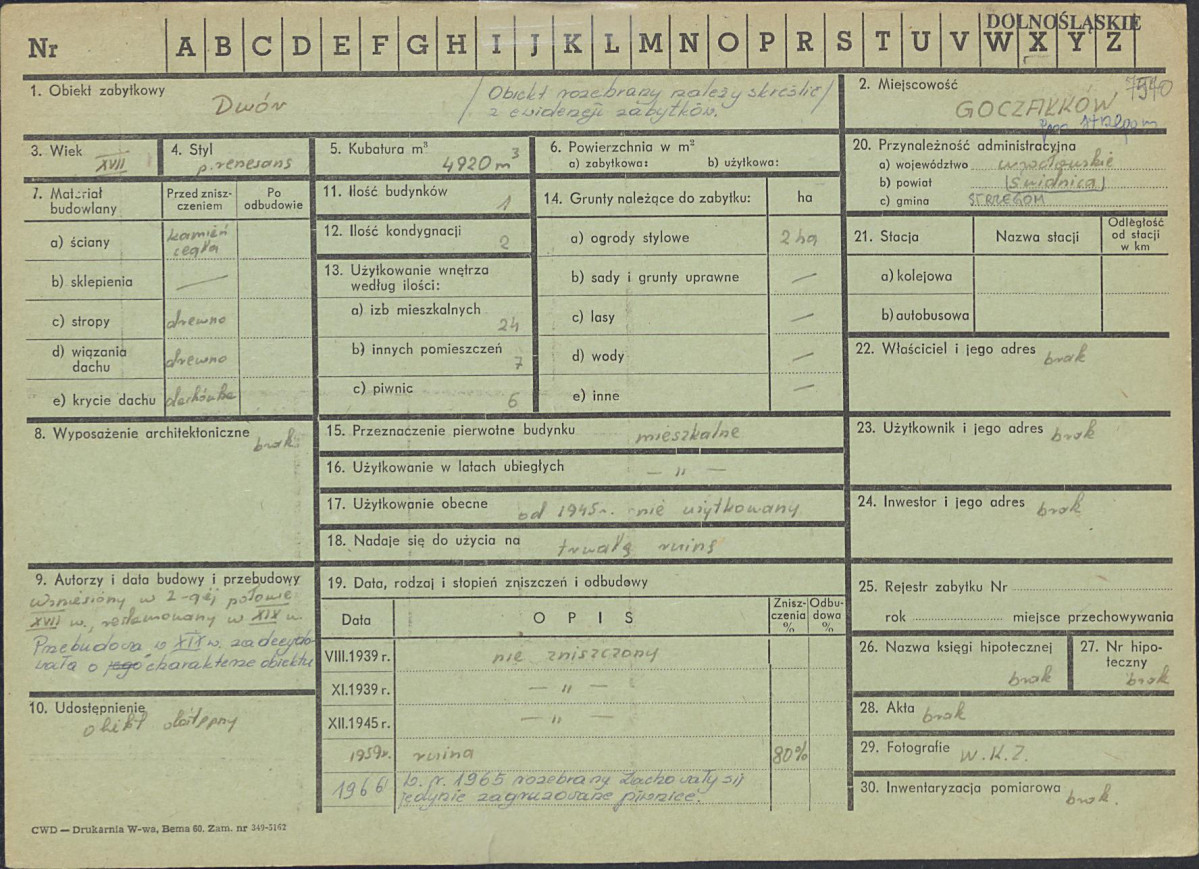 DOLNOŚLĄSKIE
Nr A B C D E F G H I J K L M N O P R S T U V W X Y Z
1. Obiekt zabytkowy
Dwór
/ Obiekt rozebrany należy skreślić /
z ewidencji zabytków.
2. Miejscowość
7570
GOCZAŁKÓW
3. Wiek
XVII
4. Styl
p. renesans
5. Kubatura m³
4920 m³
6. Powierzchnia w m²
a) zabytkowa: b) użytkowa:
20. Przynależność administracyjna
a) województwo wrocławskie
b) powiat (Świdnica)
c) gmina STRZEGOM
7. Materiał budowlany
Przed znisz-
czeniem
Po
odbudowie
a) ściany kamień
cegła
b) sklepienia —
c) stropy drewno
d) wiązania
dachu drewno
e) krycie dachu dachówka
11. Ilość budynków
1
12. Ilość kondygnacji
2
13. Użytkowanie wnętrza
według ilości:
a) izb mieszkalnych
24
b) innych pomieszczeń
7
c) piwnic
6
14. Grunty należące do zabytku: ha
a) ogrody stylowe 2 ha
b) sady i grunty uprawne —
c) lasy —
d) wody —
e) inne —
21. Stacja
Nazwa stacji
Odległość
od stacji
w km
a) kolejowa
b) autobusowa
22. Właściciel i jego adres brak
8. Wyposażenie architektoniczne brak
15. Przeznaczenie pierwotne budynku mieszkalne
16. Użytkowanie w latach ubiegłych — „ —
17. Użytkowanie obecne od 1945 r. nie użytkowany
18. Nadaje się do użycia na trwałą ruinę
23. Użytkownik i jego adres brak
24. Inwestor i jego adres brak
9. Autorzy i data budowy i przebudowy
wzniesiony w 2-giej połowie
XVII w., restaurowany w XIX w
Przebudowa w XIX w. zadecydo-
wała o jego charakterze obiektu
10. Udostępnienie
obiekt dostępny
19. Data, rodzaj i stopień zniszczeń i odbudowy
Data O P I S Znisz-
czenia
%
Odbu-
dowa
%
VIII.1939 r. nie zniszczony
XI.1939 r. — „ —
XII.1945 r. — „ —
1959 r. ruina 80%
1966 b. r. 1965 rozebrany Zachowały się
jedynie zagruzowane piwnice.
25. Rejestr zabytku Nr
rok miejsce przechowywania
26. Nazwa księgi hipotecznej
brak
27. Nr hipo-
teczny
brak
28. Akta brak
29. Fotografie W.K.Z.
30. Inwentaryzacja pomiarowa
brak.
CWD — Drukarnia W-wa, Bema 60. Zam. nr 349-5162